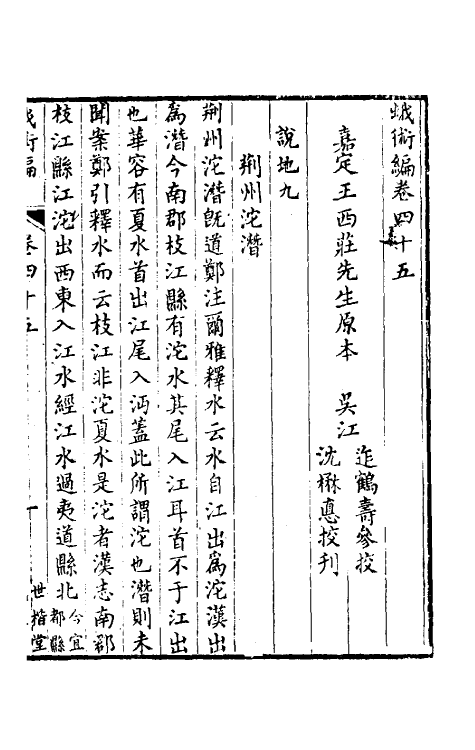 蛾術編卷四十五
嘉定王西莊先生原本　吳江
迮鶴壽參挍
沈楙悳挍刋
說地九
荆州沱潛
荆州沱潛旣道鄭注爾雅釋水云水自江出爲沱漢出
爲潛今南郡枝江縣有沱水其尾入江耳首不于江出
也華容有夏水首出江尾入沔葢此所謂沱也潛則未
聞案鄭引釋水而云枝江非沱夏水是沱者漢志南郡
枝江縣江沱出西東入江水經江水過夷道縣北
今宜
都縣
蛾術編
卷四十五
一
世揩堂